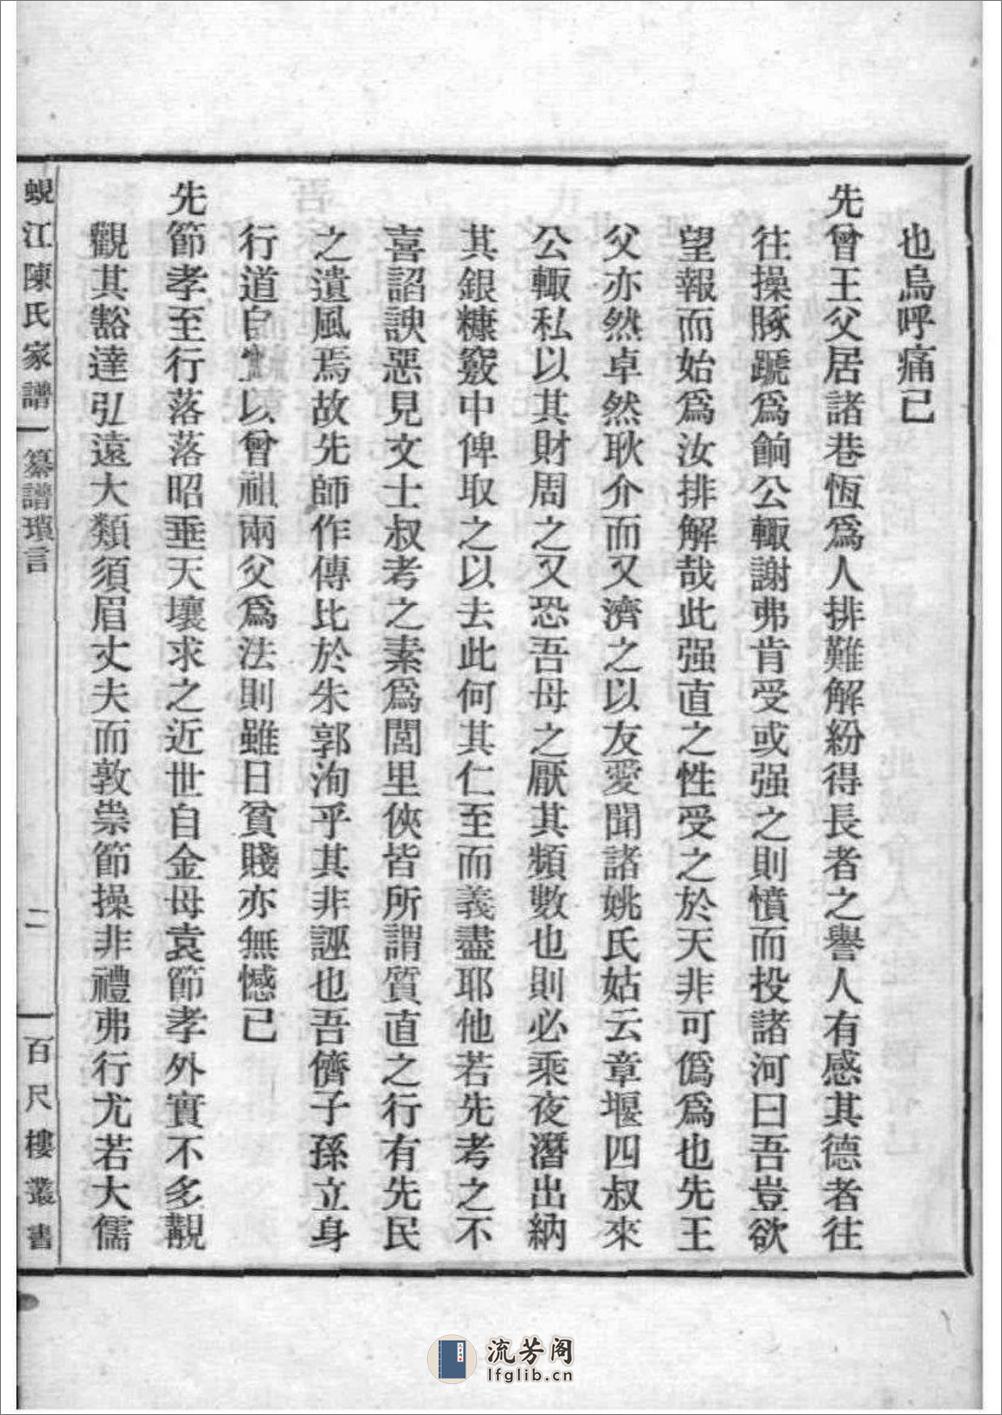 也烏呼痛已
先曾王父居諸巷恆爲人排難解紛得長者之譽人有感其德者往
往操豚蹏爲餉公輙謝弗肯受或强之則憤而投諸河曰吾豈欲
望報而始爲汝排解哉此强直之性受之於天非可僞爲也先王
父亦然卓然耿介而又濟之以友愛聞諸姚氏姑云章堰四叔來
公輙私以其財周之又恐吾母之厭其頻數也則必乘夜潛出納
其銀糠竅中俾取之以去此何其仁至而義盡耶他若先考之不
喜諂諛惡見文士叔考之素爲閭里俠皆所謂質直之行有先民
之遺風焉故先師作傳比於朱郭洵乎其非誣也吾儕子孫立身
行道自當以曾祖兩父爲法則雖日貧賤亦無憾已
先節孝至行落落昭垂天壤求之近世自金母袁節孝外實不多覯
觀其豁達弘遠大類須眉丈夫而敦崇節操非禮弗行尤若大儒
蜆江陳氏家譜 纂譜瑣言 二 百尺樓叢書
流芳阁
lfglib.cn